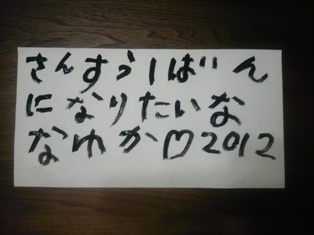 さんすう1ばん
になりたいな
なゆか♡2012